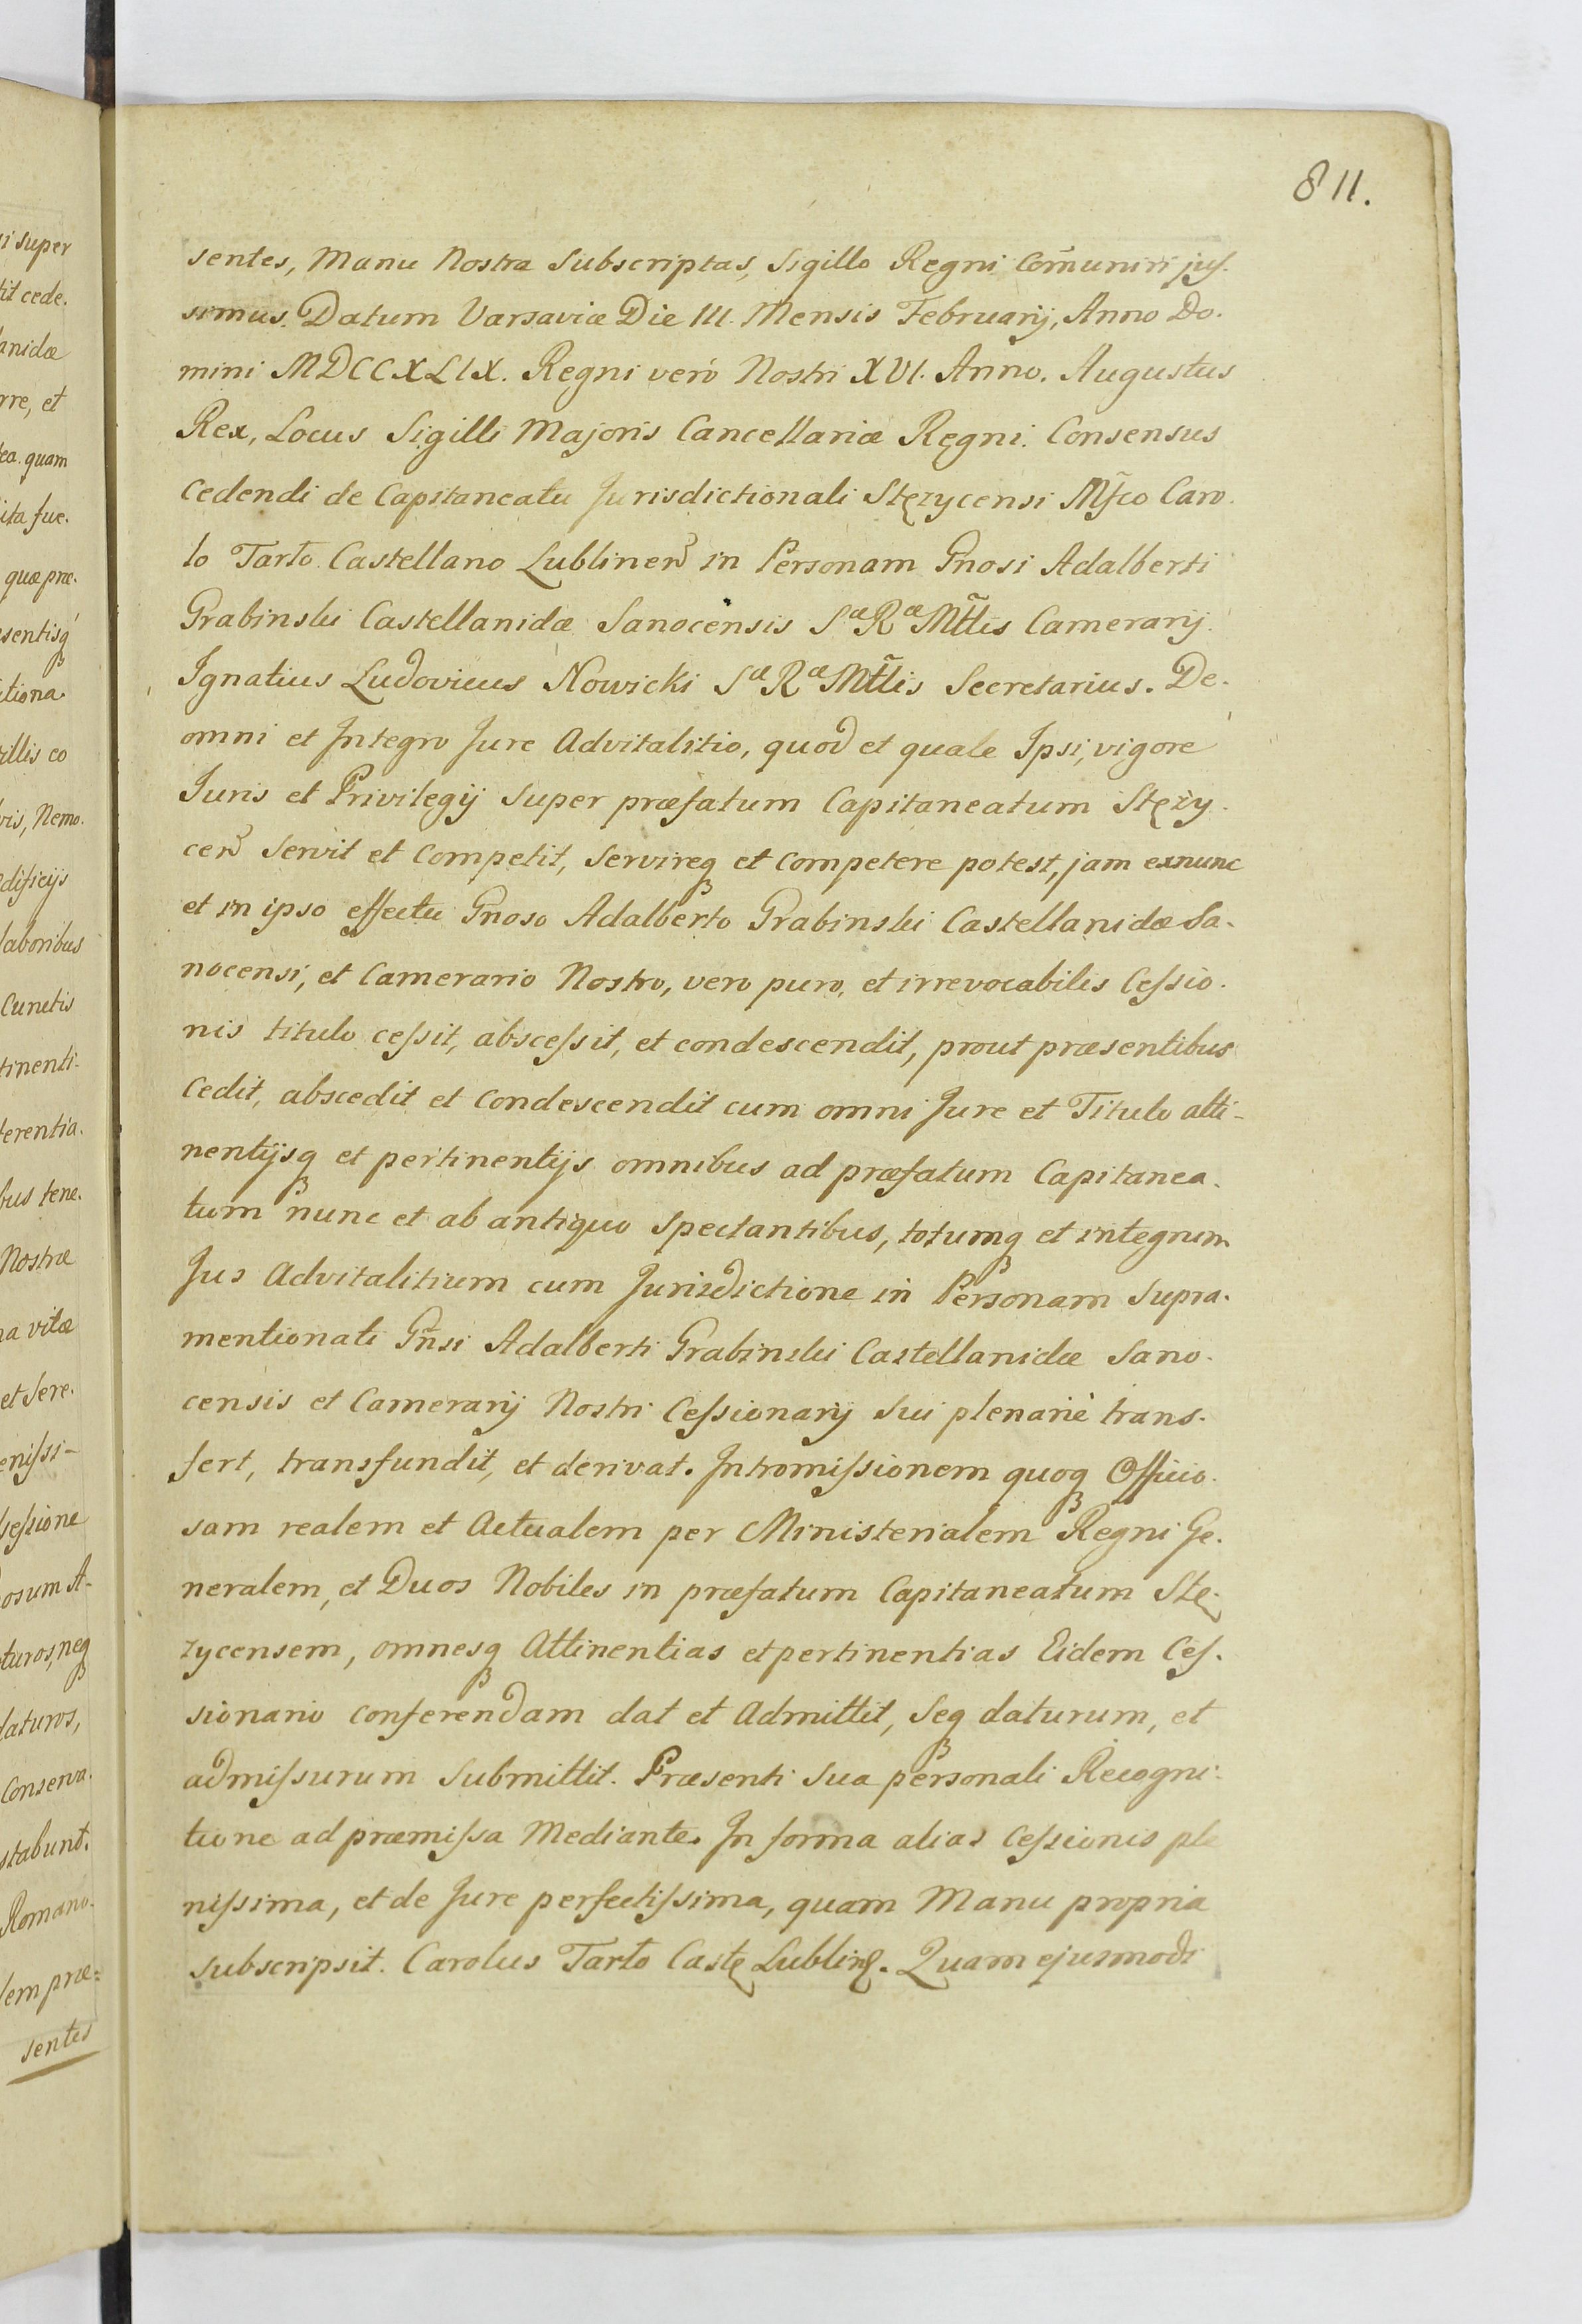 811.
sentes, Manu Nostra Subscriptas, Sigillo Regni Com̃uniri jus-
simus. Datum Varsaviæ Die III. Mensis Februarij, Anno Do-
mini MDCCXLIX. Regni verò Nostri XVI. Anno. Augustus
Rex, Locus Sigilli Majoris Cancellariæ Regni. Consensus
cedendi de Capitaneatu Jurisdictionali Stęzycensi Mfco Caro-
lo Tarło Castellano Lublinen in Personam Gnosi Adalberti
Grabinski Castellanidæ Sanocensis Sæ Ræ Mttis Camerarij.
Ignatius Ludovicus Nowicki Sæ Ræ Mttis Secretarius. De-
omni et Integro Jure Advitalitio, quod et quale Ipsi, vigore
Juris et Privilegij super præfatum Capitaneatum Stęży-
cen servit et competit, servireq et competere potest, jam exnunc
et in ipso effectu Gnoso Adalberto Grabinski Castellanidæ Sa-
nocensi, et Camerario Nostro, vero puro, et irrevocabilis Cessio-
nis titulo cessit, abscessit, et condescendit, prout præsentibus
cedit, abscedit et condescendit cum omni Jure et Titulo atti-
nentijsq et pertinentijs omnibus ad præfatum Capitanea-
tum nunc et ab antiquo spectantibus, totumq et integrum
Jus Advitalitium cum Jurisdictione in Personam Supra-
mentionati Gnsi Adalberti Grabinski Castellanidæ Sano-
censis et Camerarij Nostri Cessionarij sui plenariè trans-
fert, transfundit, et derivat. Intromissionem quoq Officio-
sam realem et Actualem per Ministerialem Regni Ge-
neralem, et Duos Nobiles in præfatum Capitaneatum Stę-
zycensem, omnesq Attinentias et pertinentias Eidem Ces-
sionario conferendam dat et Admittit, seq daturum, et
admissurum submittit. Præsenti sua personali Recogni-
tione ad præmissa Mediante. In forma alias Cessionis ple
nissima, et de Jure perfectissima, quam Manu propria
subscripsit. Carolus Tarło Castę Lubline. Quam ejusmodi